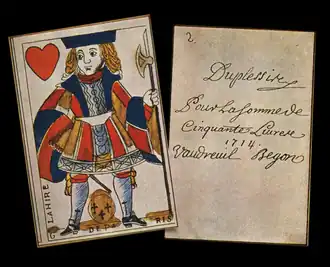 LAHIRE
G DE PA RIS
2
Duplessis
Pour La somme de
Cinquante Livres
1714.
Vaudreuil Begon